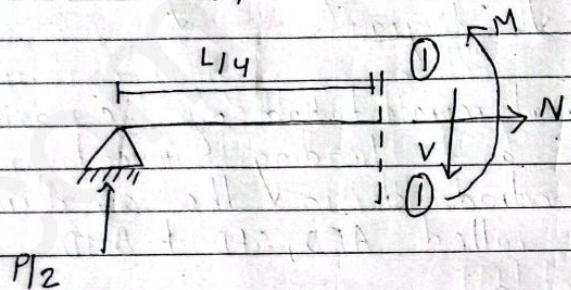 L/4
①
M
N
V
①
P/2